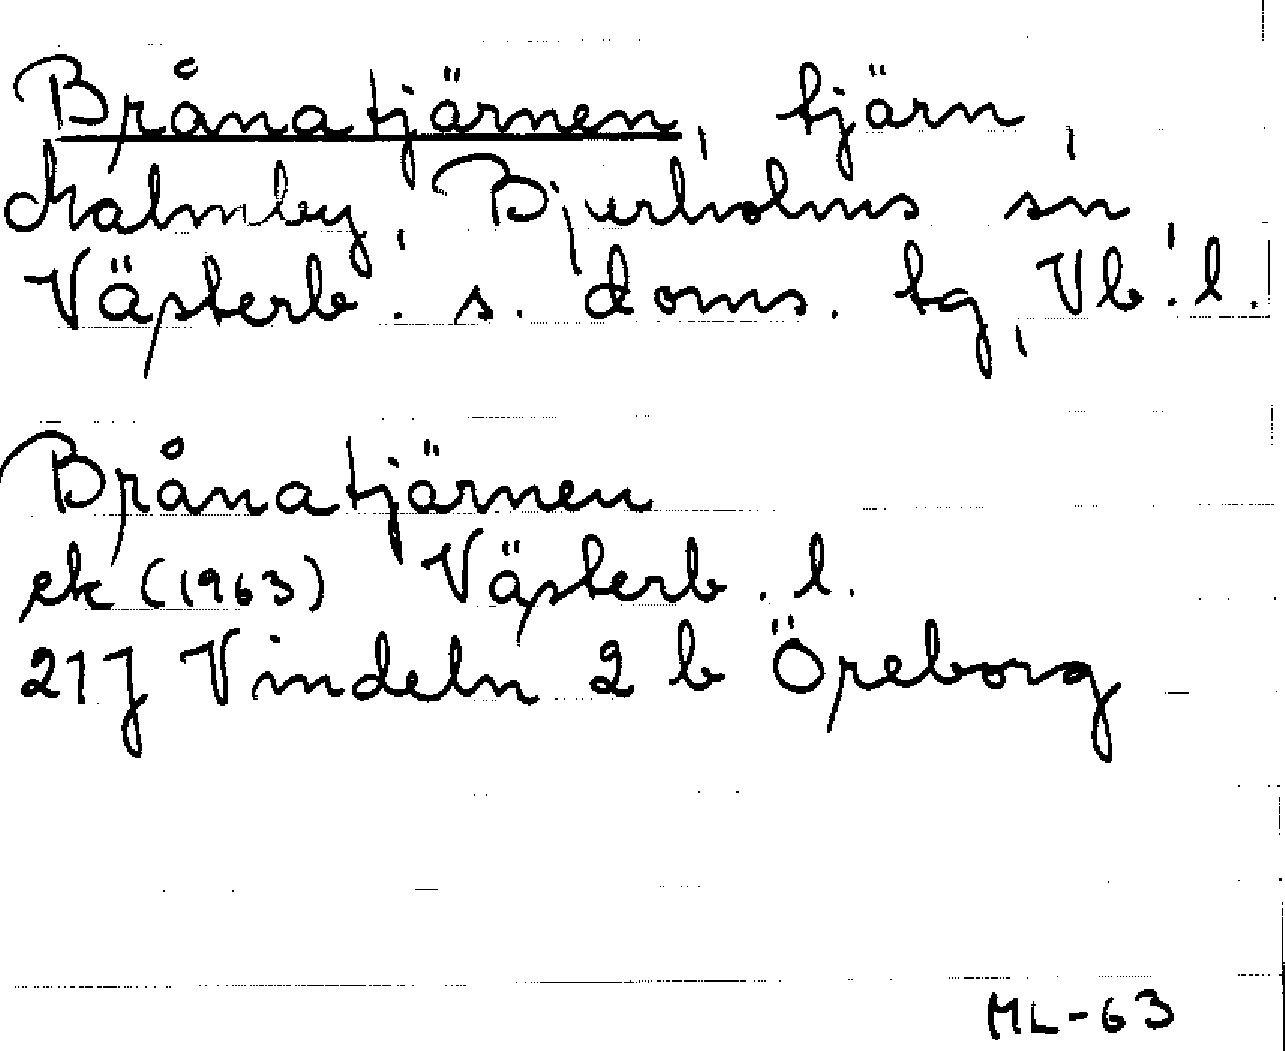 Brånatjärnen, tjärn,
Kalmby, Bjurholms sn,
Västerb. s. doms. tg, Vb. l.
Brånatjärnen
ek (1963) Västerb. l.
21J Vindeln 2 b Öreborg
ML-63